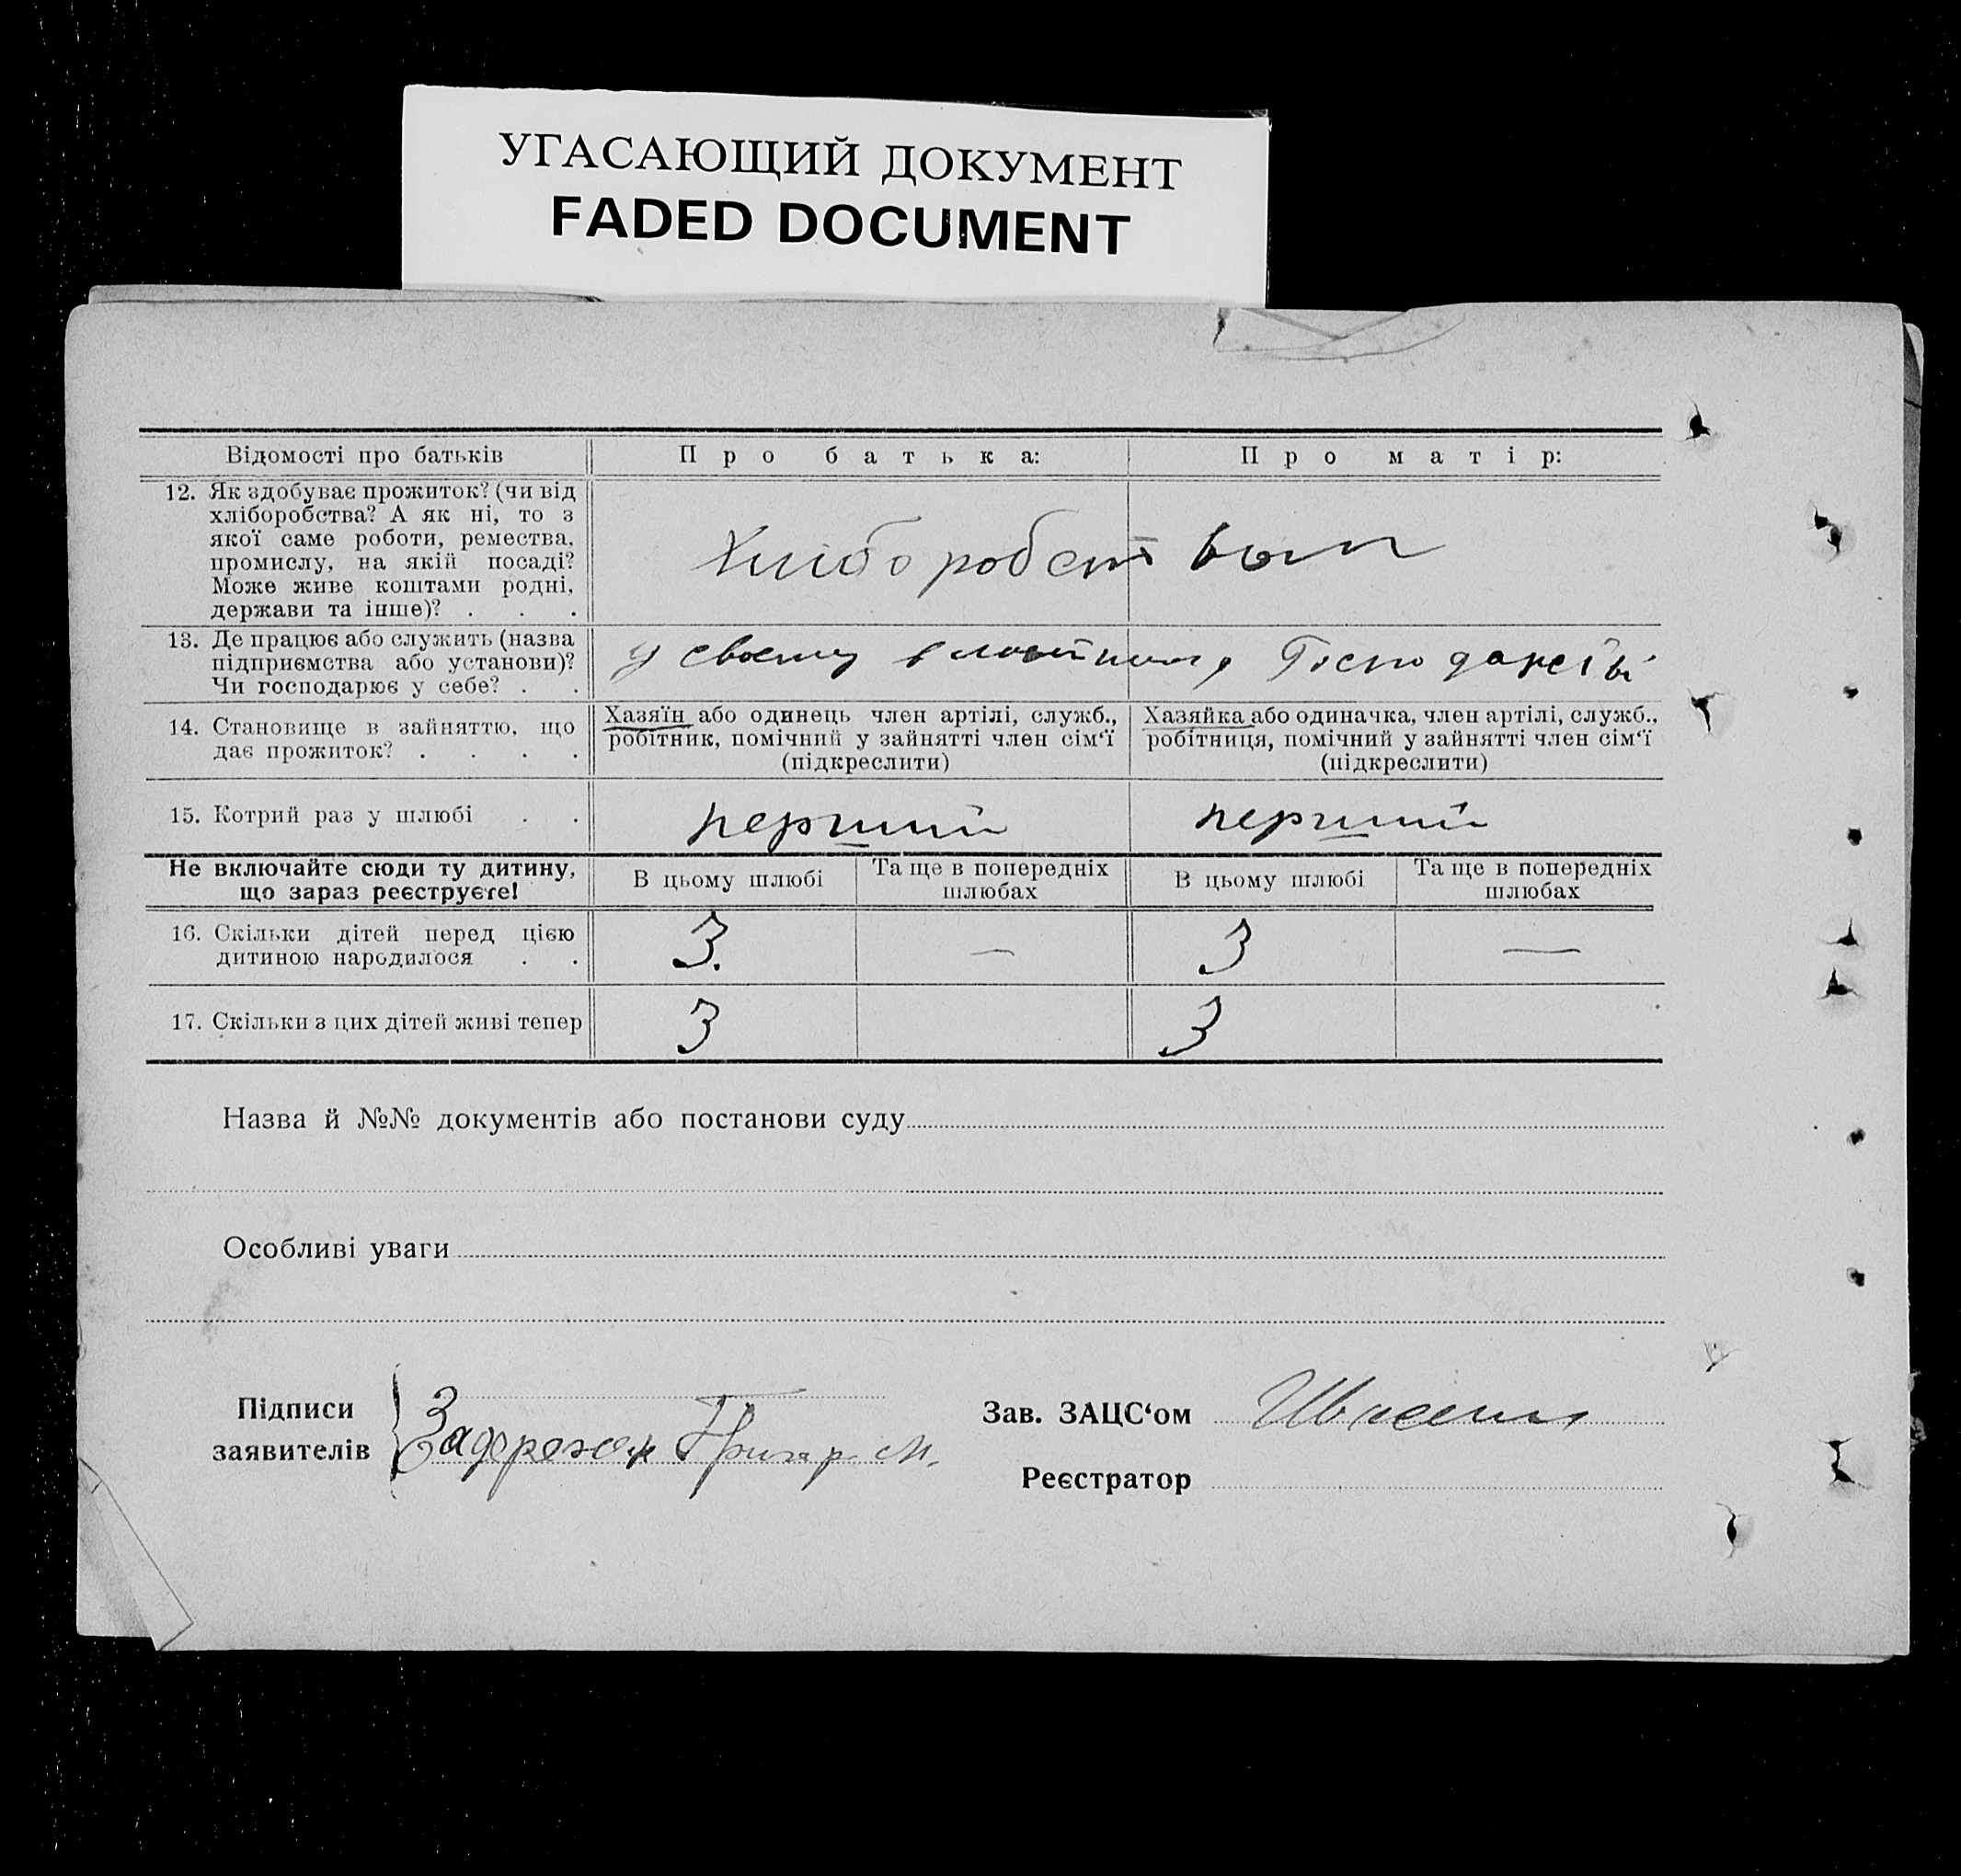 УГАСАЮЩИЙ ДОКУМЕНТ
FADED DOCUMENT
Відомості про батьків
Про батька:
Про матір:
12. Як здобуває прожиток? (чи від
хліборобства? А як ні, то з
якої саме роботи, ремества,
промислу, на якій посаді?
Може живе коштами родні,
держави та інше)? . . .
Хліборобством
13. Де працює або служить (назва
підприємства або установи)?
Чи господарює у себе? . .
у своему Господарстві
14. Становище в зайняттю, що
дає прожиток? . . . .
Хазяїн або одинець член артілі, служб.,
робітник, помічний у зайнятті член сім‘ї
(підкреслити)
Хазяйка або одиначка, член артілі, служб.,
робітниця, помічний у зайнятті член сім‘ї
(підкреслити)
15. Котрий раз у шлюбі . .
перший
перший
Не включайте сюди ту дитину,
що зараз реєструєте!
В цьому шлюбі
Та ще в попередніх
шлюбах
В цьому шлюбі
Та ще в попередніх
шлюбах
16. Скільки дітей перед цією
дитиною народилося . .
3.
—
3
—
17. Скільки з цих дітей живі тепер
3
3
Назва й №№ документів або постанови суду
Особливі уваги
Підписи
заявителів
М.
Зав. ЗАЦС‘ом
Реєстратор